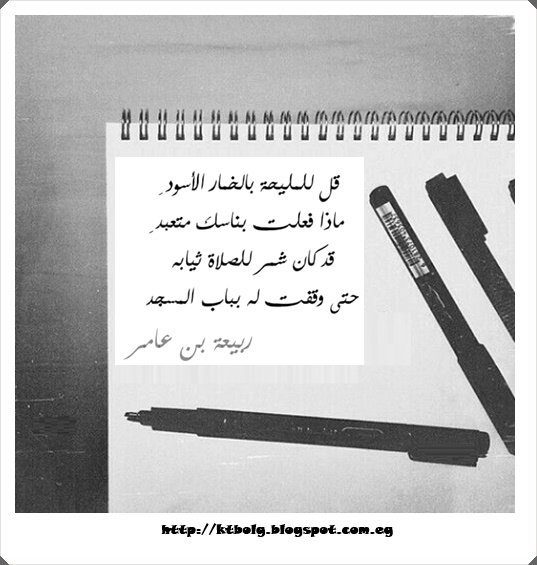 قل للمليحة بالخمار الأسودِ
ماذا فعلت بناسك متعبدِ
قد كان شمر للصلاة ثيابه
حتى وقفت له بباب المسجد
ربيعة بن عامر
http://ktbolg.blogspot.com.eg